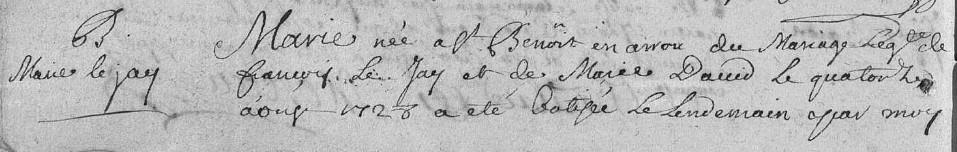 B.
Marie le jay
Marie née a St Benoist en arrou du Mariage Legte de
françois Le Jay et de Marie David le quatorze
aoust 1728 a eté batisée le Lendemain par moy